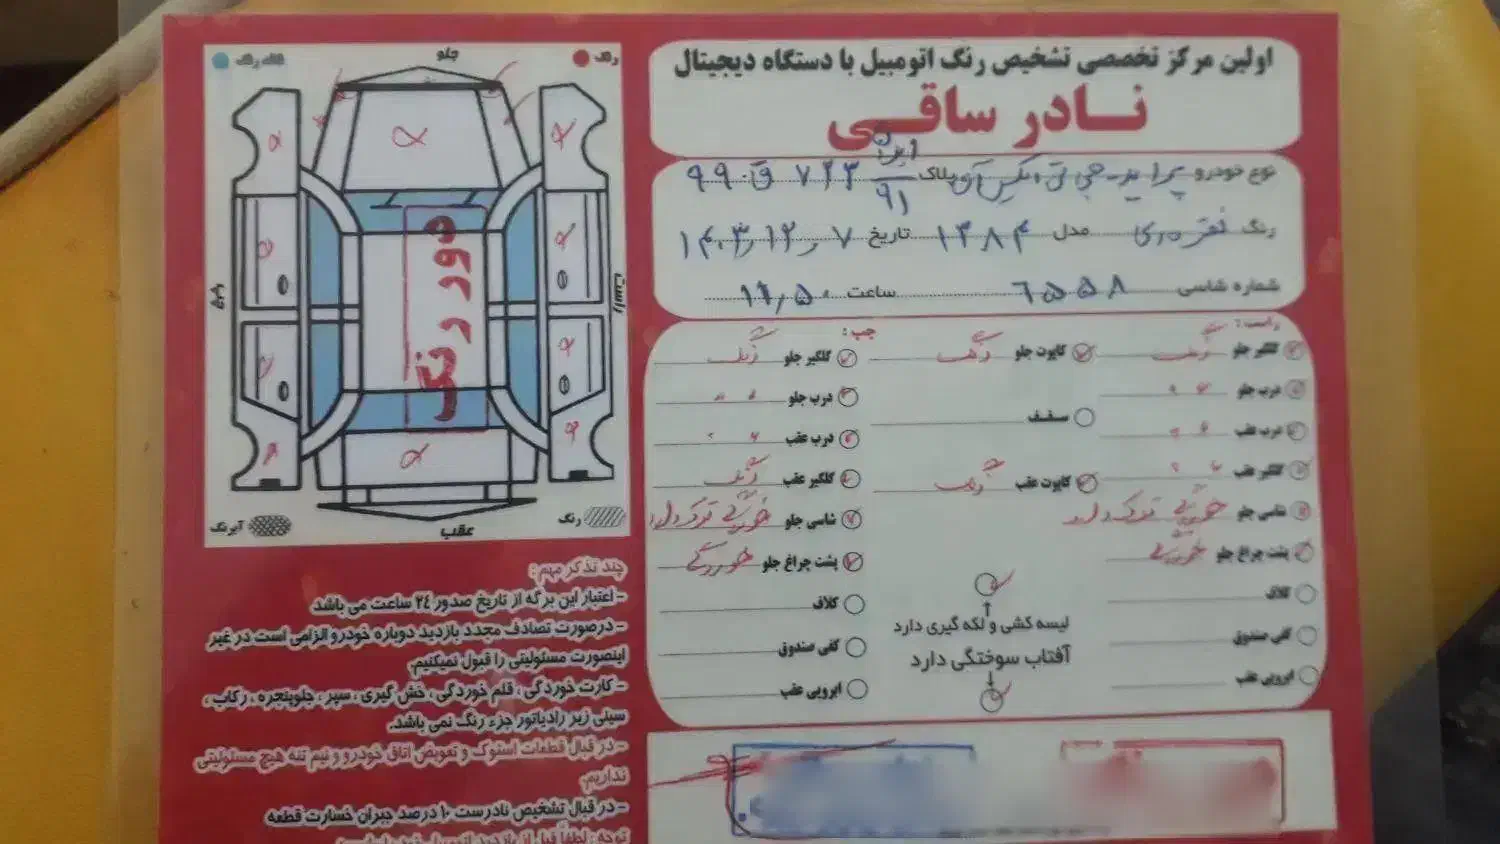 اولین مرکز تخصصی تشخیص رنگ اتومبیل با دستگاه دیجیتال
نادر ساقی
نوع خودرو پراید جی تی ایکس آی پلاک ایران ۹۱ ۷۲۳ ق ۹۹
رنگ نقره ای مدل ۱۳۸۴ تاریخ ۱۴۰۳,۱۲,۷
شماره شاسی ۶۵۵۸ ساعت ۱۱,۵۰
راست :
گلگیر جلو رنگ
درب جلو 〃
درب عقب 〃
گلگیر عقب 〃
شاسی جلو خوردگی ترک دارد
پشت چراغ جلو خوردگی
کلاف
کفی صندوق
ابرویی عقب
کاپوت جلو رنگ
سقف
کاپوت عقب رنگ
لیسه کشی و لکه گیری دارد
آفتاب سوختگی دارد
چپ :
گلگیر جلو رنگ
درب جلو 〃
درب عقب 〃
گلگیر عقب رنگ
شاسی جلو خوردگی ترک دارد
پشت چراغ جلو خوردگی
کلاف
کفی صندوق
ابرویی عقب
رنگ
جلو
راست
چپ
دور رنگ
عقب
رنگ
آبرنگ
چند تذکر مهم :
- اعتبار این برگه از تاریخ صدور ۲۴ ساعت می باشد
- درصورت تصادف مجدد بازدید دوباره خودرو الزامی است در غیر
اینصورت مسئولیتی را قبول نمیکنیم.
- کارت خوردگی ، قلم خوردگی ، خش گیری ، سپر ، جلوپنجره ، رکاب ،
سینی زیر رادیاتور جزء رنگ نمی باشد.
- در قبال قطعات استوک و تعویض اتاق خودرو و نیم تنه هیچ مسئولیتی
نداریم.
- در قبال تشخیص نادرست ۱۰ درصد جبران خسارت قطعه
توجه : لطفا قبل از بازدید اتومبیل خود را